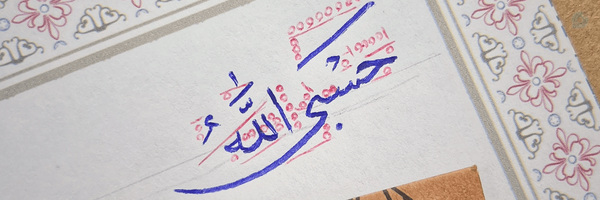 حسبي اللهُ